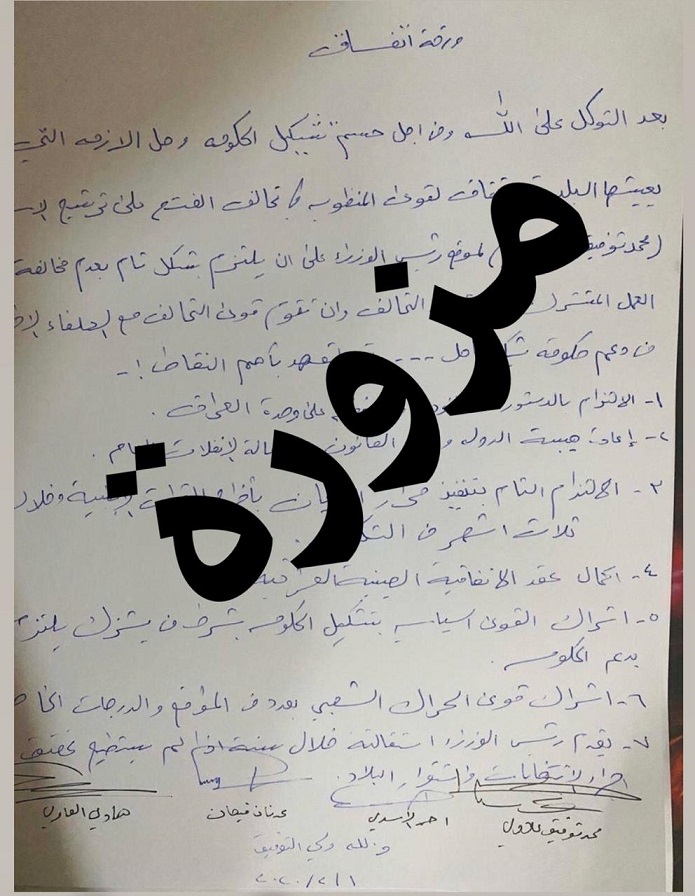 ورقة اتفاق
بعد التوكل على الله ومن اجل حسم تشكيل الحكومه وحل الازمه التي
يعيشها البلد لقوى المنظويه تحالف الفتح على ترشيح
(محمد توفيق لموقع رئيس الوزراء على ان يلتزم بشكل تام بعدم مخالفة
العمل المشترك التحالف وان تقوم قوى التحالف مع الحلفاء
من دعم حكومة بأهم النقاط :-
١- الالتزام بالدستور على وحدة العراق .
٢- إعادة هيبة الدوله و القانون
٣- الالتزام التام بتنفيذ قرار وخلال
ثلاث اشهر من
٤- اكمال عقد الاتفاقية الصينية العراقية
٥- اشراك القوى السياسيه بتشكيل الحكومه بشرط من يشترك يلتزم
بدعم الحكومه .
٦- اشراك قوى الحراك الشعبي بعدد من المواقع والدرجات
٧- يقدم رئيس الوزراء استقالته خلال سنة اذا لم يستطيع تحقيق
اجراء الانتخابات واستقرار البلاد .
محمد توفيق علاوي احمد الاسدي عدنان فيحان هادي العامري
والله ولي التوفيق
٢٠٢٠/٢/١
مزورة